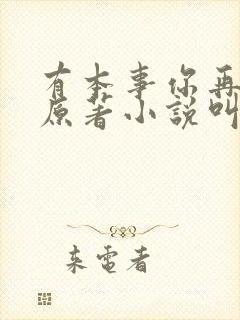 有本事你再
原著小說叫
来電者